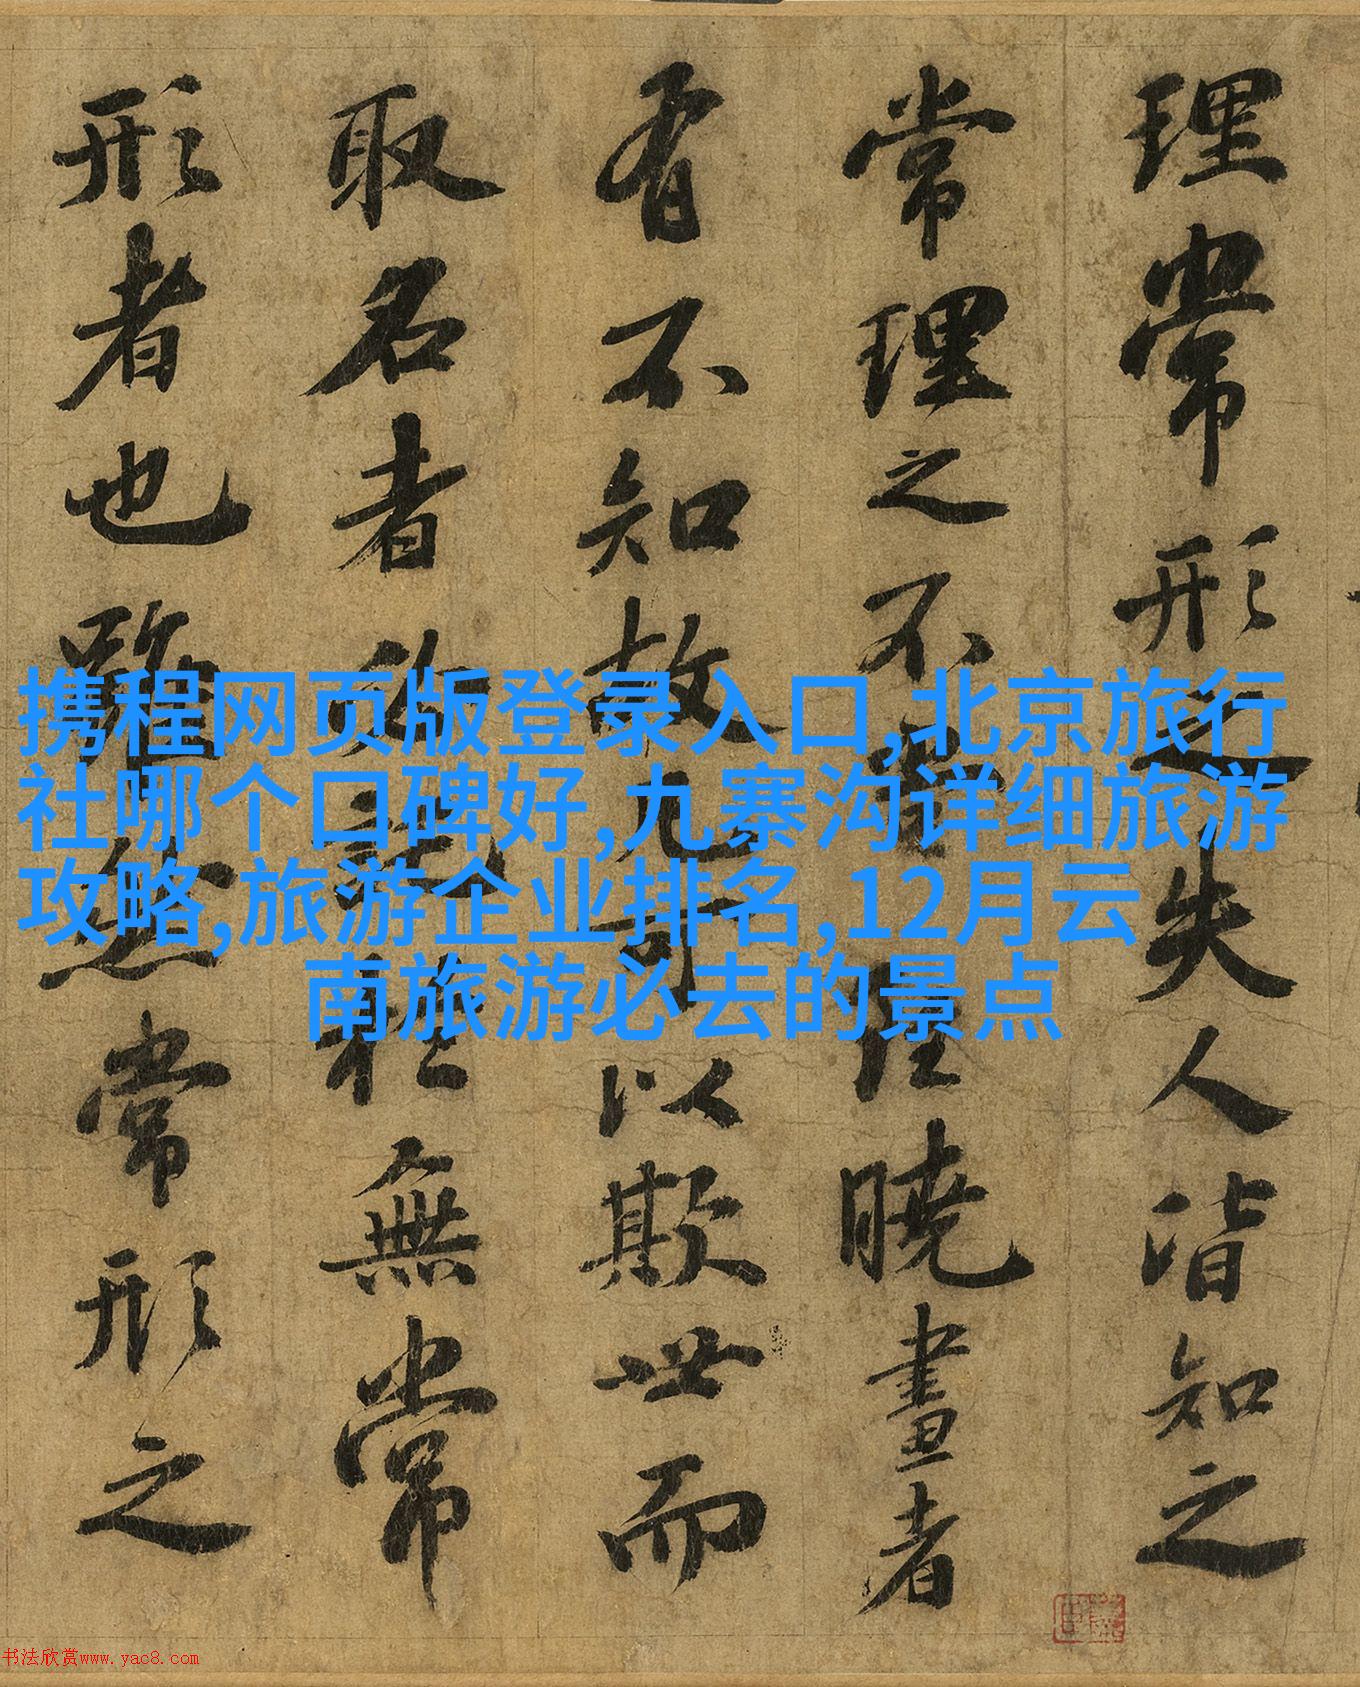 理常形之失人皆知之
常理之不當雖曉畫者
有不知故凡可以欺世而
取名者必託於無常
形者也雖然常形之
携程网页版登录入口,北京旅行
社哪个口碑好,九寨沟详细旅游
攻略,旅游企业排名,12月云
南旅游必去的景点
书法欣赏www.yac8.com